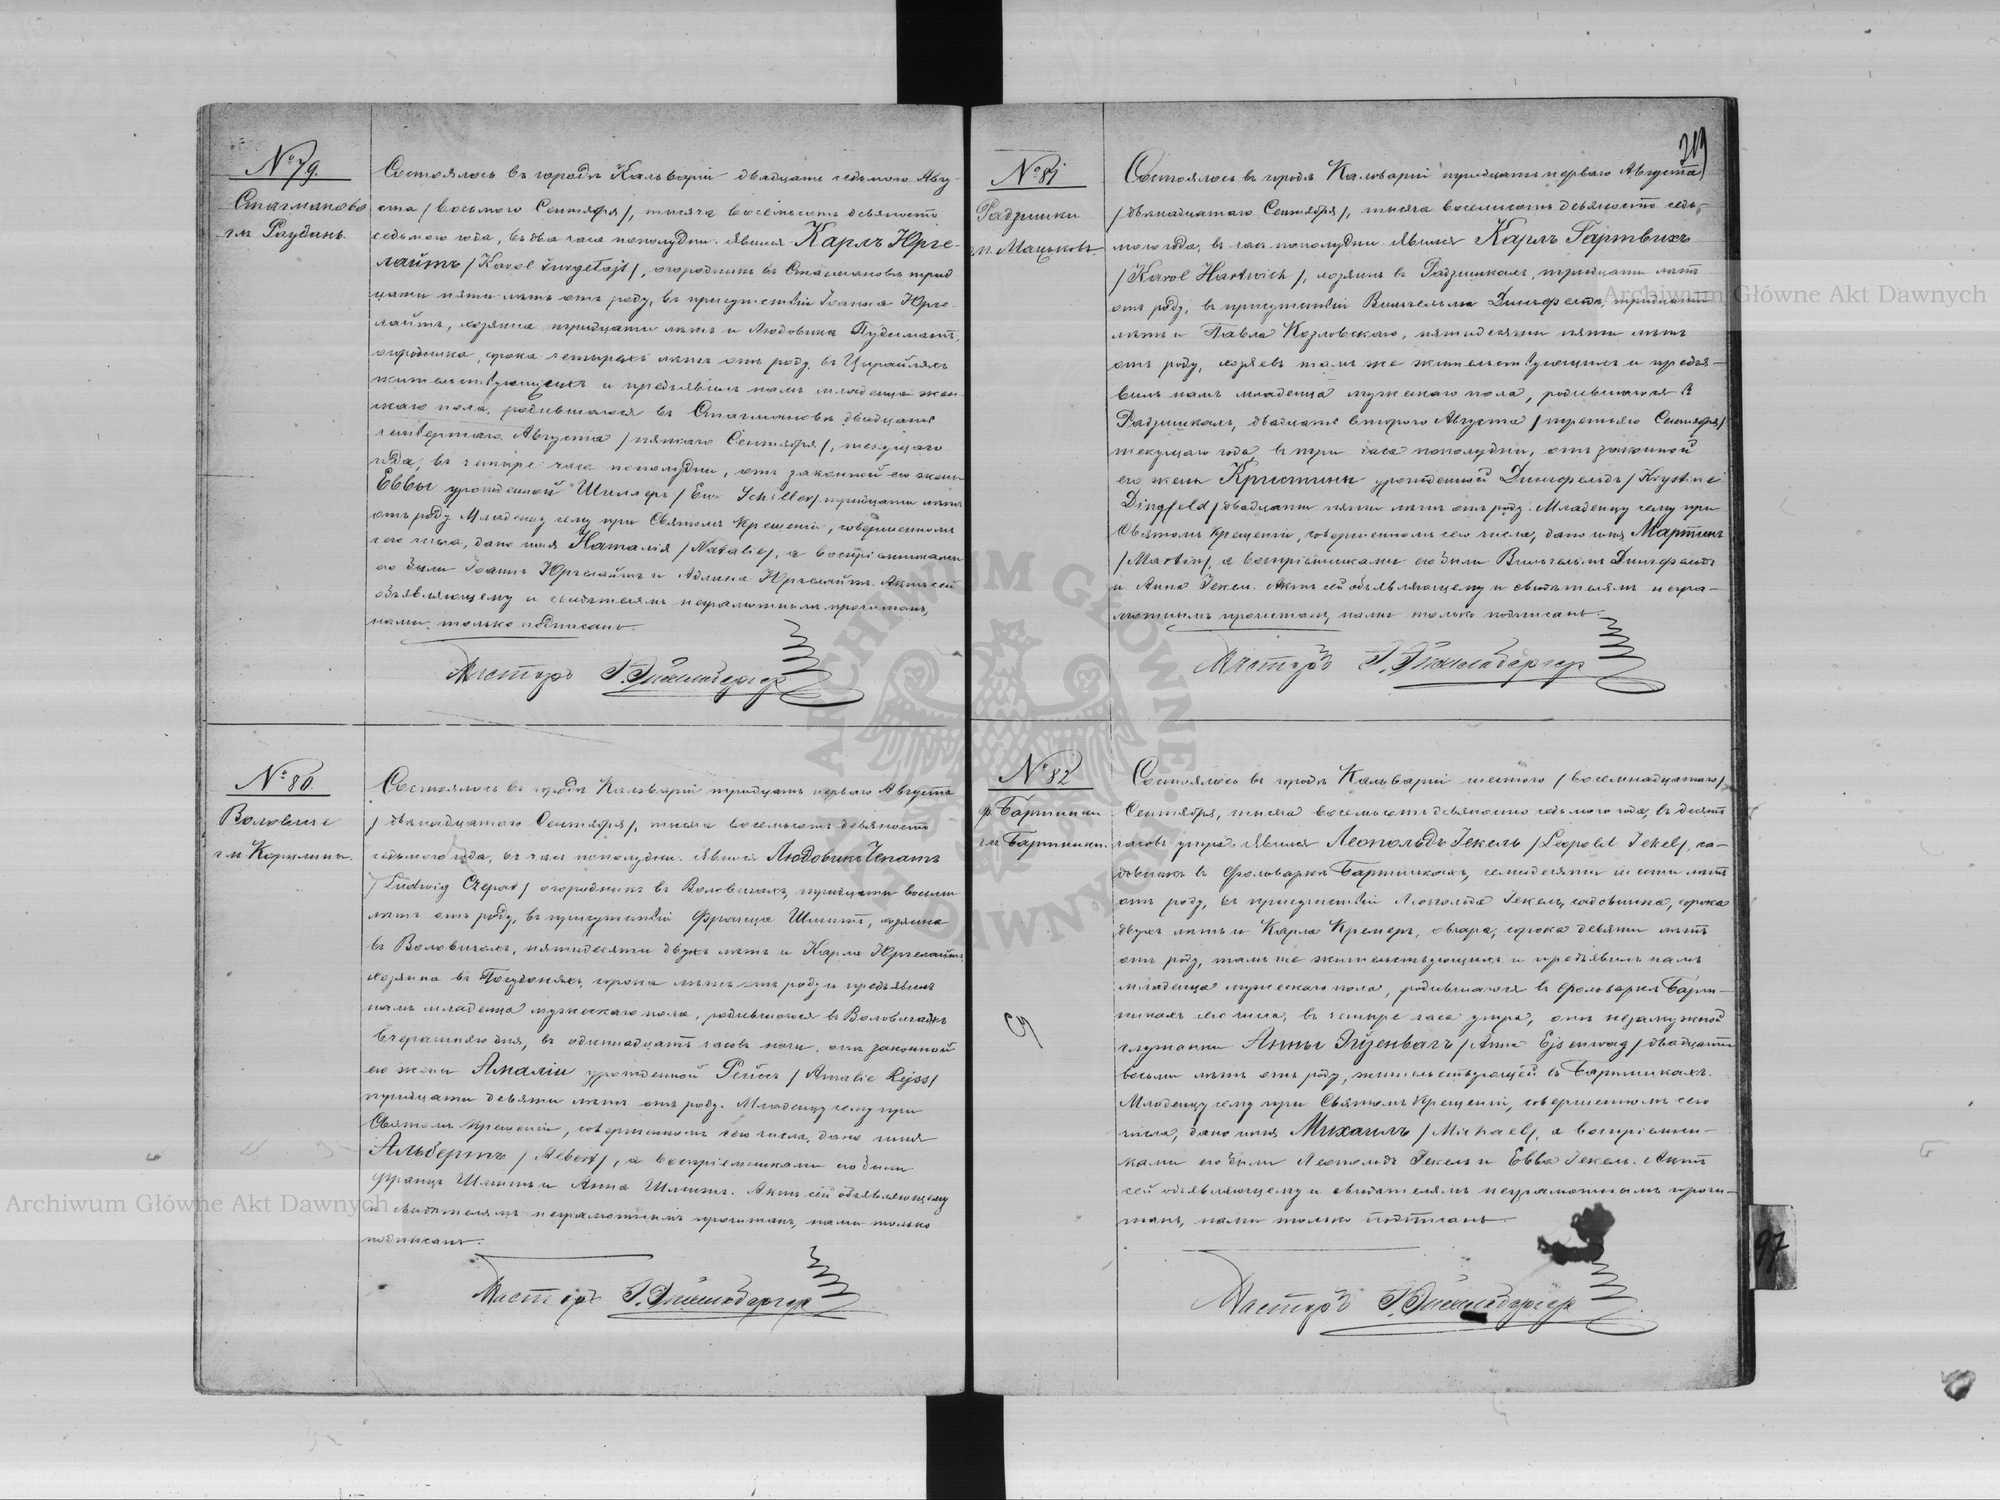 № 79.
Стасманово
гм. Раудань.
Состоялось въ городѣ Кальваріи двадцать седьмого Авгу-
ста /восьмого Сентября/, тысяча восемьсотъ девяносто
седьмого года, въ два часа пополудни. Явился Карлъ Юрге-
лайтъ /Karol Jurgelajt/, огородникъ въ Стасмановѣ трид-
цати пяти лѣтъ отъ роду, въ присутствіи Іоанна Юрге-
лайтъ, хозяина тридцати лѣтъ и Людовика
огородника, сорока четырехъ лѣтъ отъ роду, въ
жительствующихъ и предъявилъ намъ младенца жен-
скаго пола, родившагося въ Стасмановѣ двадцать
четвертаго Августа /пятаго Сентября/, текущаго
года, въ четыре часа пополудни, отъ законной его жены
Еввы урожденной Шиллеръ /Ewa Schiller/ тридцати лѣтъ
отъ роду. Младенцу сему при Святомъ Крещеніи, совершенномъ
сего числа, дано имя Наталія /Natalie/, а воспріемниками
его были Іоаннъ Юргелайтъ и Адлина Юргелайтъ. Актъ сей
объявляющему и свидѣтелямъ неграмотнымъ прочитанъ,
нами только подписанъ.
Пасторъ
№ 80.
Воловиче
гм Корклины.
Состоялось въ городѣ Кальваріи тридцать перваго Августа
/двѣнадцатаго Сентября/, тысяча восемьсотъ девяносто
седьмого года, въ часъ пополудни. Явился Людовикъ Чепатъ
/Ludwig Czepat/ огородникъ въ Воловичахъ, тридцати восьми
лѣтъ отъ роду, въ присутствіи Франца Шмитъ, хозяина
въ Воловичахъ, пятидесяти двухъ лѣтъ и Карла Юргелайтъ
хозяина въ сорока лѣтъ отъ роду и предъявилъ
намъ младенца мужескаго пола, родившагося въ Воловичахъ
вчерашняго дня, въ одиннадцать часовъ ночи, отъ законной
его жены Амаліи урожденной Рейсъ /Amalie Rejss/
тридцати девяти лѣтъ отъ роду. Младенцу сему при
Святомъ Крещеніи, совершенномъ сего числа, дано имя
Альбертъ /Albert/, а воспріемниками его были
Францъ Шмитъ и Анна Шмитъ. Актъ сей объявляющему
и свидѣтелямъ неграмотнымъ прочитанъ, нами только
подписанъ.
Пасторъ
219
№ 81
Радзишки
гм. Мацьковъ.
Состоялось въ городѣ Кальваріи тридцать перваго Августа
/двѣнадцатаго Сентября/, тысяча восемьсотъ девяносто седь-
мого года, въ часъ пополудни явился Карлъ Гартвихъ
/Karol Hartwich/, хозяинъ въ Радзишкахъ, тридцати лѣтъ
отъ роду, въ присутствіи Вильгельма Дингфельдъ, тридцати
лѣтъ и Павла Козловскаго, пятидесяти пяти лѣтъ
отъ роду, хозяевъ тамъ же жительствующихъ и предъя-
вилъ намъ младенца мужескаго пола, родившагося въ
Радзишкахъ, двадцать второго Августа /третьяго Сентября/
текущаго года, въ три часа пополудни, отъ законной
его жены Кристины урожденной Дингфельдъ /Krystine
Dingfeld/ двадцати пяти лѣтъ отъ роду. Младенцу сему при
Святомъ Крещеніи, совершенномъ сего числа, дано имя Мартинъ
/Martin/, а воспріемниками его были Вильгельмъ Дингфельдъ
и Анна Іекель. Актъ сей объявляющему и свидѣтелямъ негра-
мотнымъ прочитанъ, нами только подписанъ.
Пасторъ
№ 82
ф. Бартники
гм Бартники.
Состоялось въ городѣ Кальваріи шестого /восемнадцатаго/
Сентября, тысяча восемьсотъ девяносто седьмого года, въ десять
часовъ утра. явился Леопольдъ Іекель /Leopold Jekel/, са-
довникъ въ фольваркѣ Бартникахъ, семидесяти шести лѣтъ
отъ роду, въ присутствіи Леопольда Іекель, садовника, сорока
двухъ лѣтъ и Карла Кремеръ, овчара, сорока девяти лѣтъ
отъ роду, тамъ же жительствующихъ и предъявилъ намъ
младенца мужескаго пола, родившагося въ фольваркѣ Барт-
никахъ сего числа, въ четыре часа утра, отъ незамужной
служанки Анны Эйзенвагъ /Anna Ejsenwag/ двадцати
восьми лѣтъ отъ роду, жительствующей въ Бартникахъ.
Младенцу сему при Святомъ Крещеніи, совершенномъ сего
числа, дано имя Михаилъ /Michael/, а воспріемни-
ками его были Леопольдъ Іекель и Евва Іекель. Актъ
сей объявляющему и свидѣтелямъ неграмотнымъ прочи-
танъ, нами только подписанъ.
Пасторъ
97
Archiwum Główne Akt Dawnych
Archiwum Główne Akt Dawnych
ARCHIWUM GŁÓWNE AKT DAWNYCH